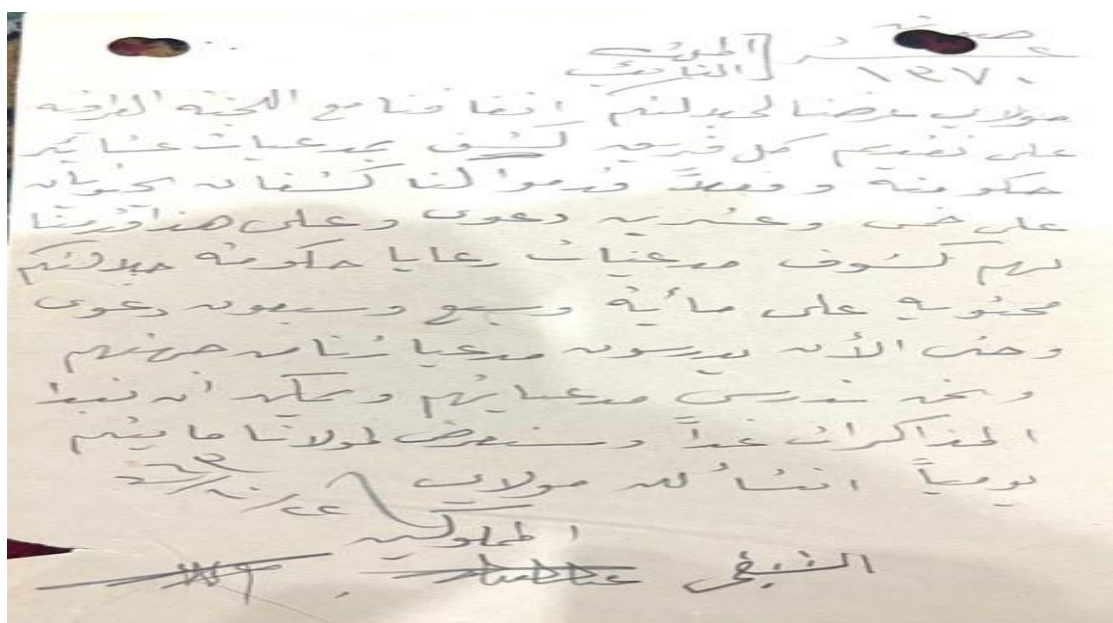 الموضوع
١٣٧٠ التاريخ
مولاي عرضنا لجلالتكم اتفاقنا مع اللجنة العراقية
على تقديم كل فريق كشف بمدعيات عشائر
حكومته وفعلاً قدموا لنا كشفان يحتويان
على خمس وعشرين دعوى وعلى هذا قدمنا
لهم كشوف مدعيات رعايا حكومة جلالتكم
محتويه على مائية وسبع وسبعون دعوى
وحتى الأن يدرسون مدعياتنا من جهتهم
ونحن ندرس مدعياتهم ويمكن ان نبدا
المذاكرات غداً وسنعرض لمولانا ما يتم
يومياً انشا لله مولاي
المملوكين